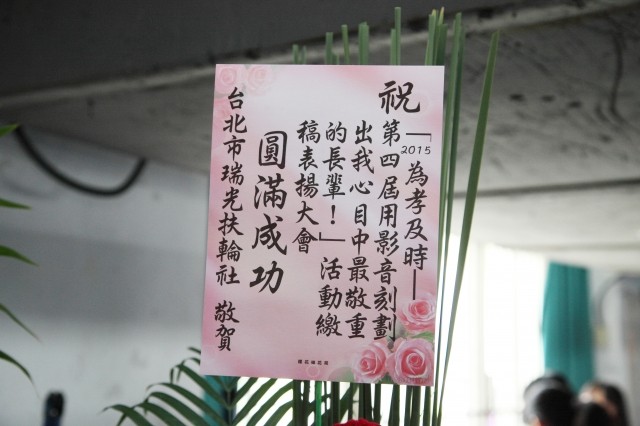 祝
「2015為孝及時—
第四屆用影音刻劃
出我心目中最敬重
的長輩!」活動繳
稿表揚大會
圓滿成功
台北市瑞光扶輪社 敬賀